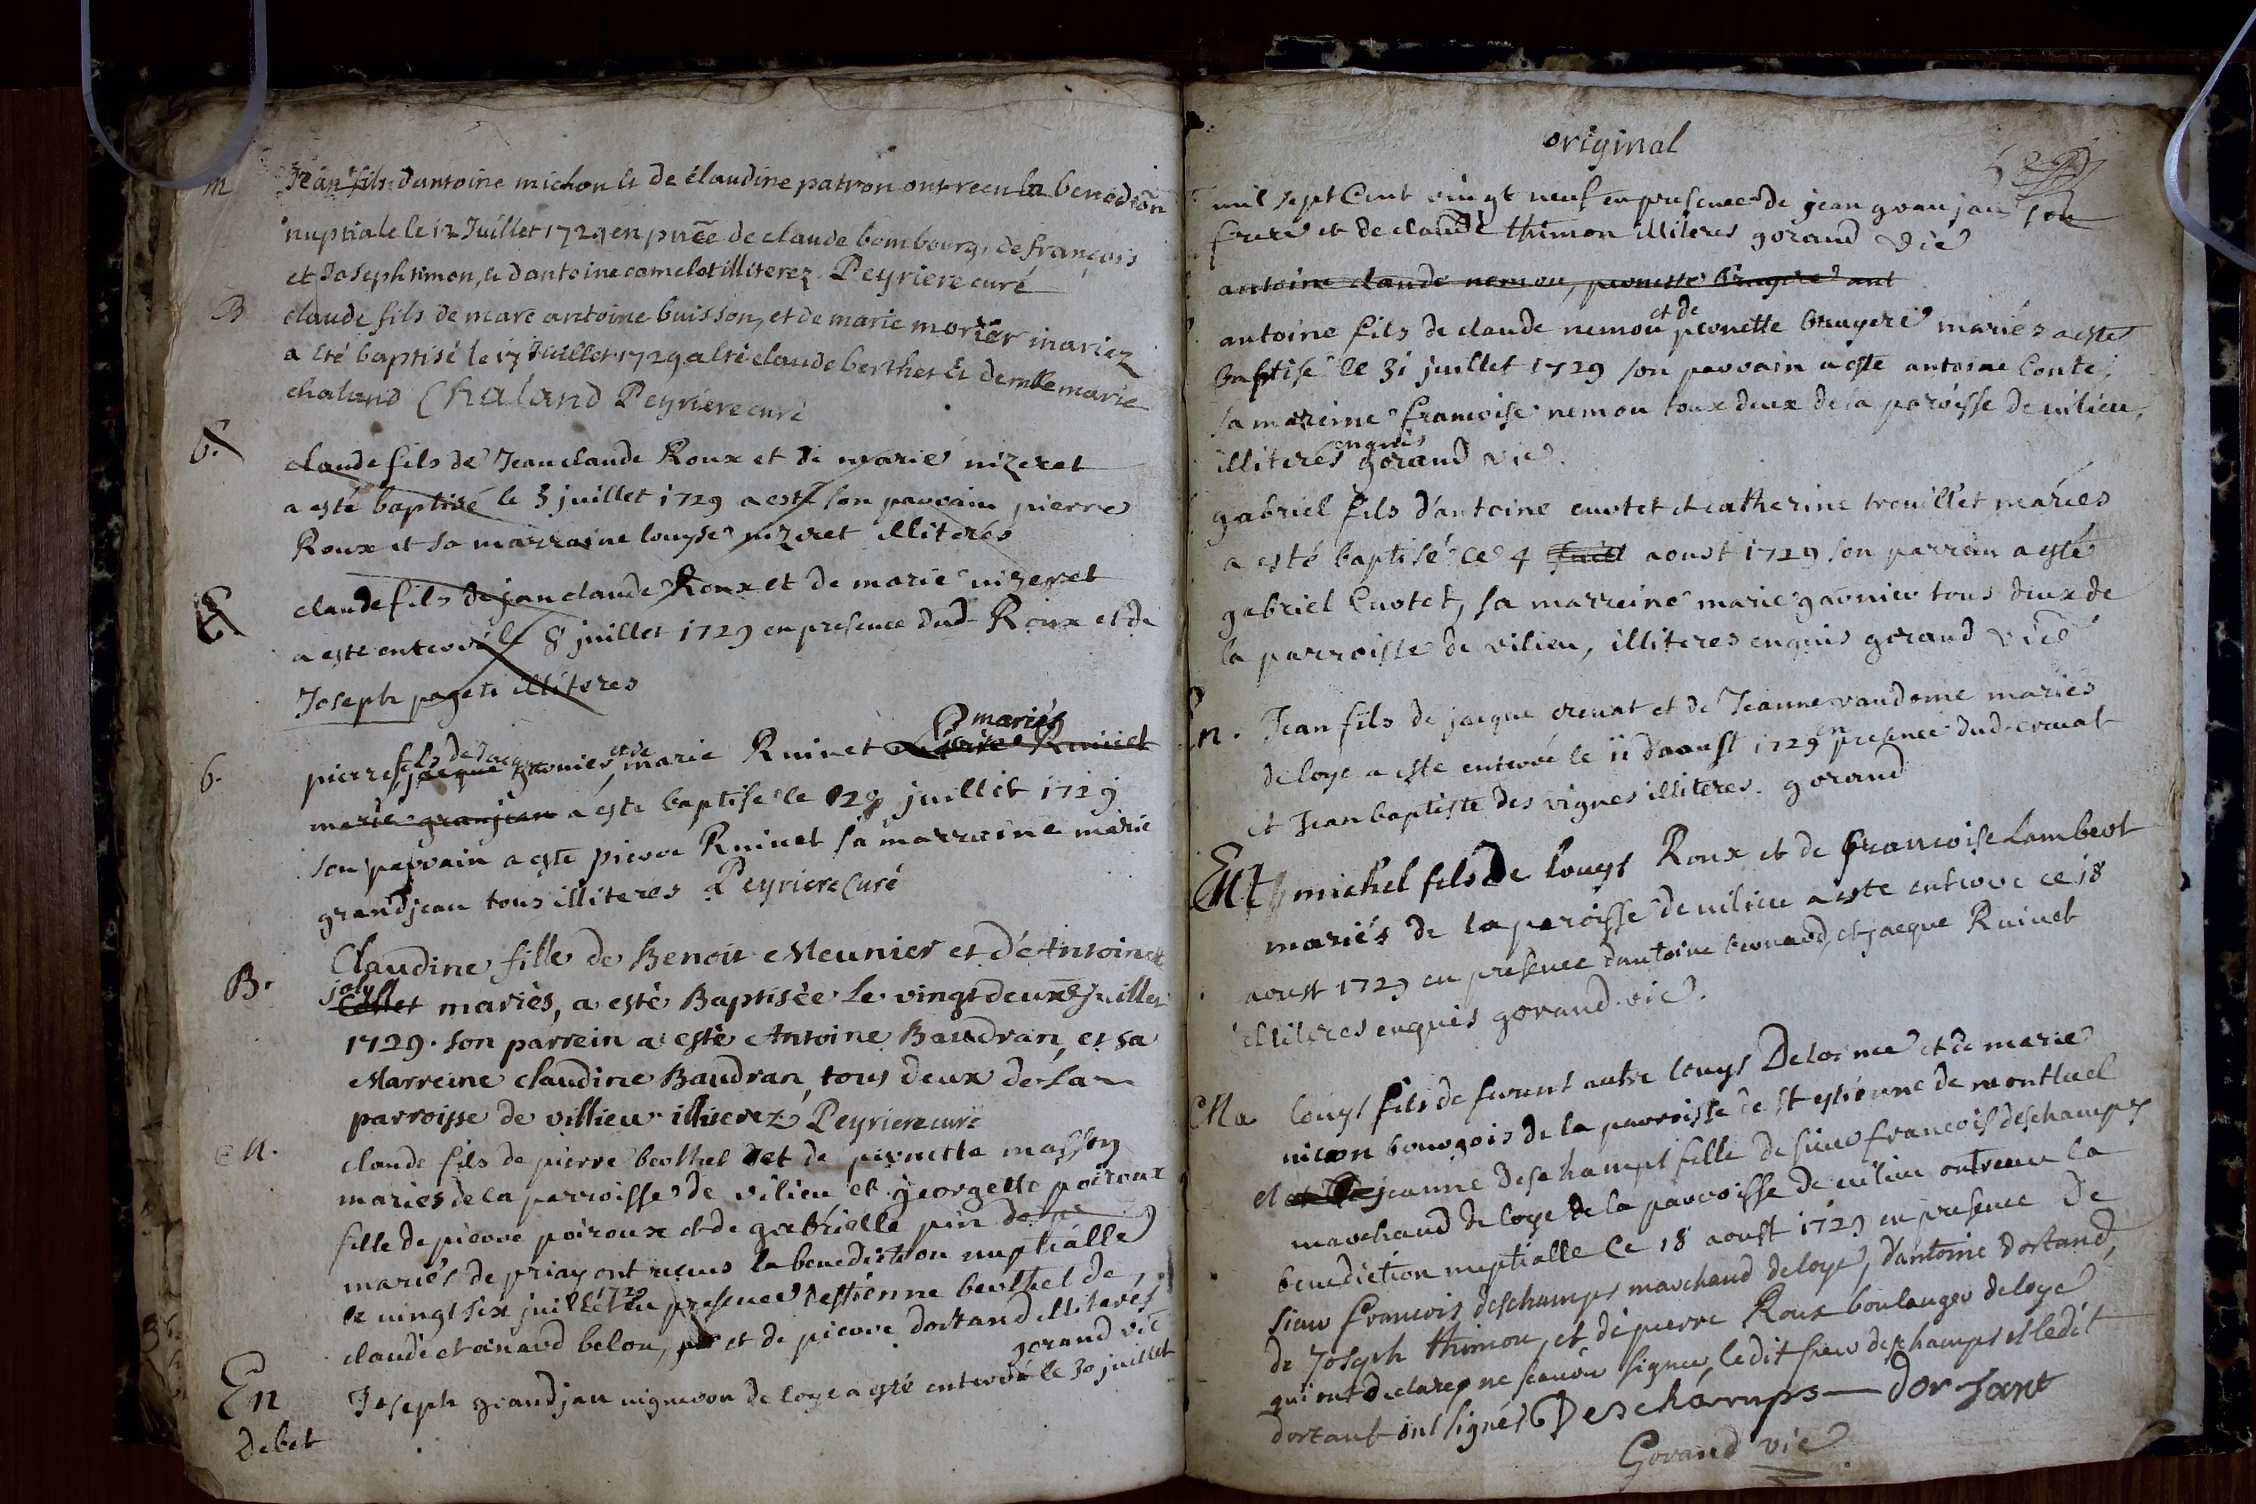 m Jean fils d'antoine michon et de claudine patron ont receu la benedon
nuptiale le 12 Juillet 1729 en pnce de claude bombourg, de françois
et Joseph timon, et d'antoine camelot illiterez Peyriere curé
B claude fils de marc antoine buisson, et de marie morier mariez
a eté baptisé le 17 Juillet 1729 a eté claude berthet et demlle marie
chaland Chaland Peyriere curé
b. claude fils de Jean claude Roux et de marie nizeret
a esté baptisé le 3 juillet 1729 a esté son parrain pierre
Roux et sa marraine louyse nizeret illiterés
E claude fils de jan claude Roux et de marie nizeret
a este enterré le 8 juillet 1729 en presence dud Roux et de
Joseph pageti illiteres
b. pierre fils de Jacque granier et de marie Ruinet mariés
marie granjean a este baptise le 29 juillet 1729
son parrain a este pierre Ruinet sa marraine marie
grandjean tous illiteres Peyriere Curé
B. Claudine fille de Benoit Meunier et d'Antoinette
joly
Collet mariés, a esté Baptisée le vingt deuxe Juillet
1729. son parrein a esté Antoine Baudran, et sa
Marreine claudine Baudran, tous deux de la
parroisse de villieu illiterez Peyriere curé
M. claude fils de pierre berthet et de pernette masson
maries de la parroisse de vilieu et georgette poiroux
fille de pierre poiroux et de gabrielle pin
mariés de priay ont receus la benediction nuptialle
le vingt six juillet 1729 en presence d'estienne berthet de
claude et ainard belon, et de pierre dortand illiterés
gorand vic
En Joseph grandjan vigneron de loye a esté enterré le 30 juillet
debet
original
mil sept Cent vingt neuf en presence de jean granjan son
frere et de claude thimon illiteres gorand vic
antoine claude nemou, pernette bruyere ant
antoine fils de claude nemou et de pernette bruyere mariés a este
baptise le 31 juillet 1729 son parrain a este antoine Conte,
sa mareine francoise nemou toux deux de la paroisse de vilieu,
illiterés enquis gorand vic.
gabriel fils d'antoine cuotet et catherine trouillet mariés
a esté baptisé ce 4 juill aoust 1729 son parrain a esté
gabriel Cuotet, sa marreine marie garnier tous deux de
la parroisse de vilieu, illiteres enquis gorand vic
En. Jean fils de jacque cruat et de Jeanne vandome mariés
de loye a este enterré le 11 d'aoust 1729 en presence dud cruat
et Jean baptiste des vignes illiteres. gorand
Ent michel fils de louys Roux et de francoise Lambert
mariés de la paroisse de vilieu a este enterré ce 18
aoust 1729 en presence d'antoine bernard, et jacque Ruinet
illiteres enquis gorand vic.
Ma louys fils de furent autre louys Delorme et de marie
nicon bourgois de la parroisse de st estienne de montluel
et jeanne Deschamps fille de sieur francois deschamps
marchand de loye de la parroisse de vilieu ont receu la
benediction nuptialle ce 18 aoust 1729 en presence de
sieur francois deschamps marchand de loye, d'antoine dortand,
de Joseph thimon, et de pierre Roux boulanger de loye
qui ont declarés ne scavoir signer, ledit sieur deschamps et ledit
dortant ont signés Deschamps dortant
Gorand vic